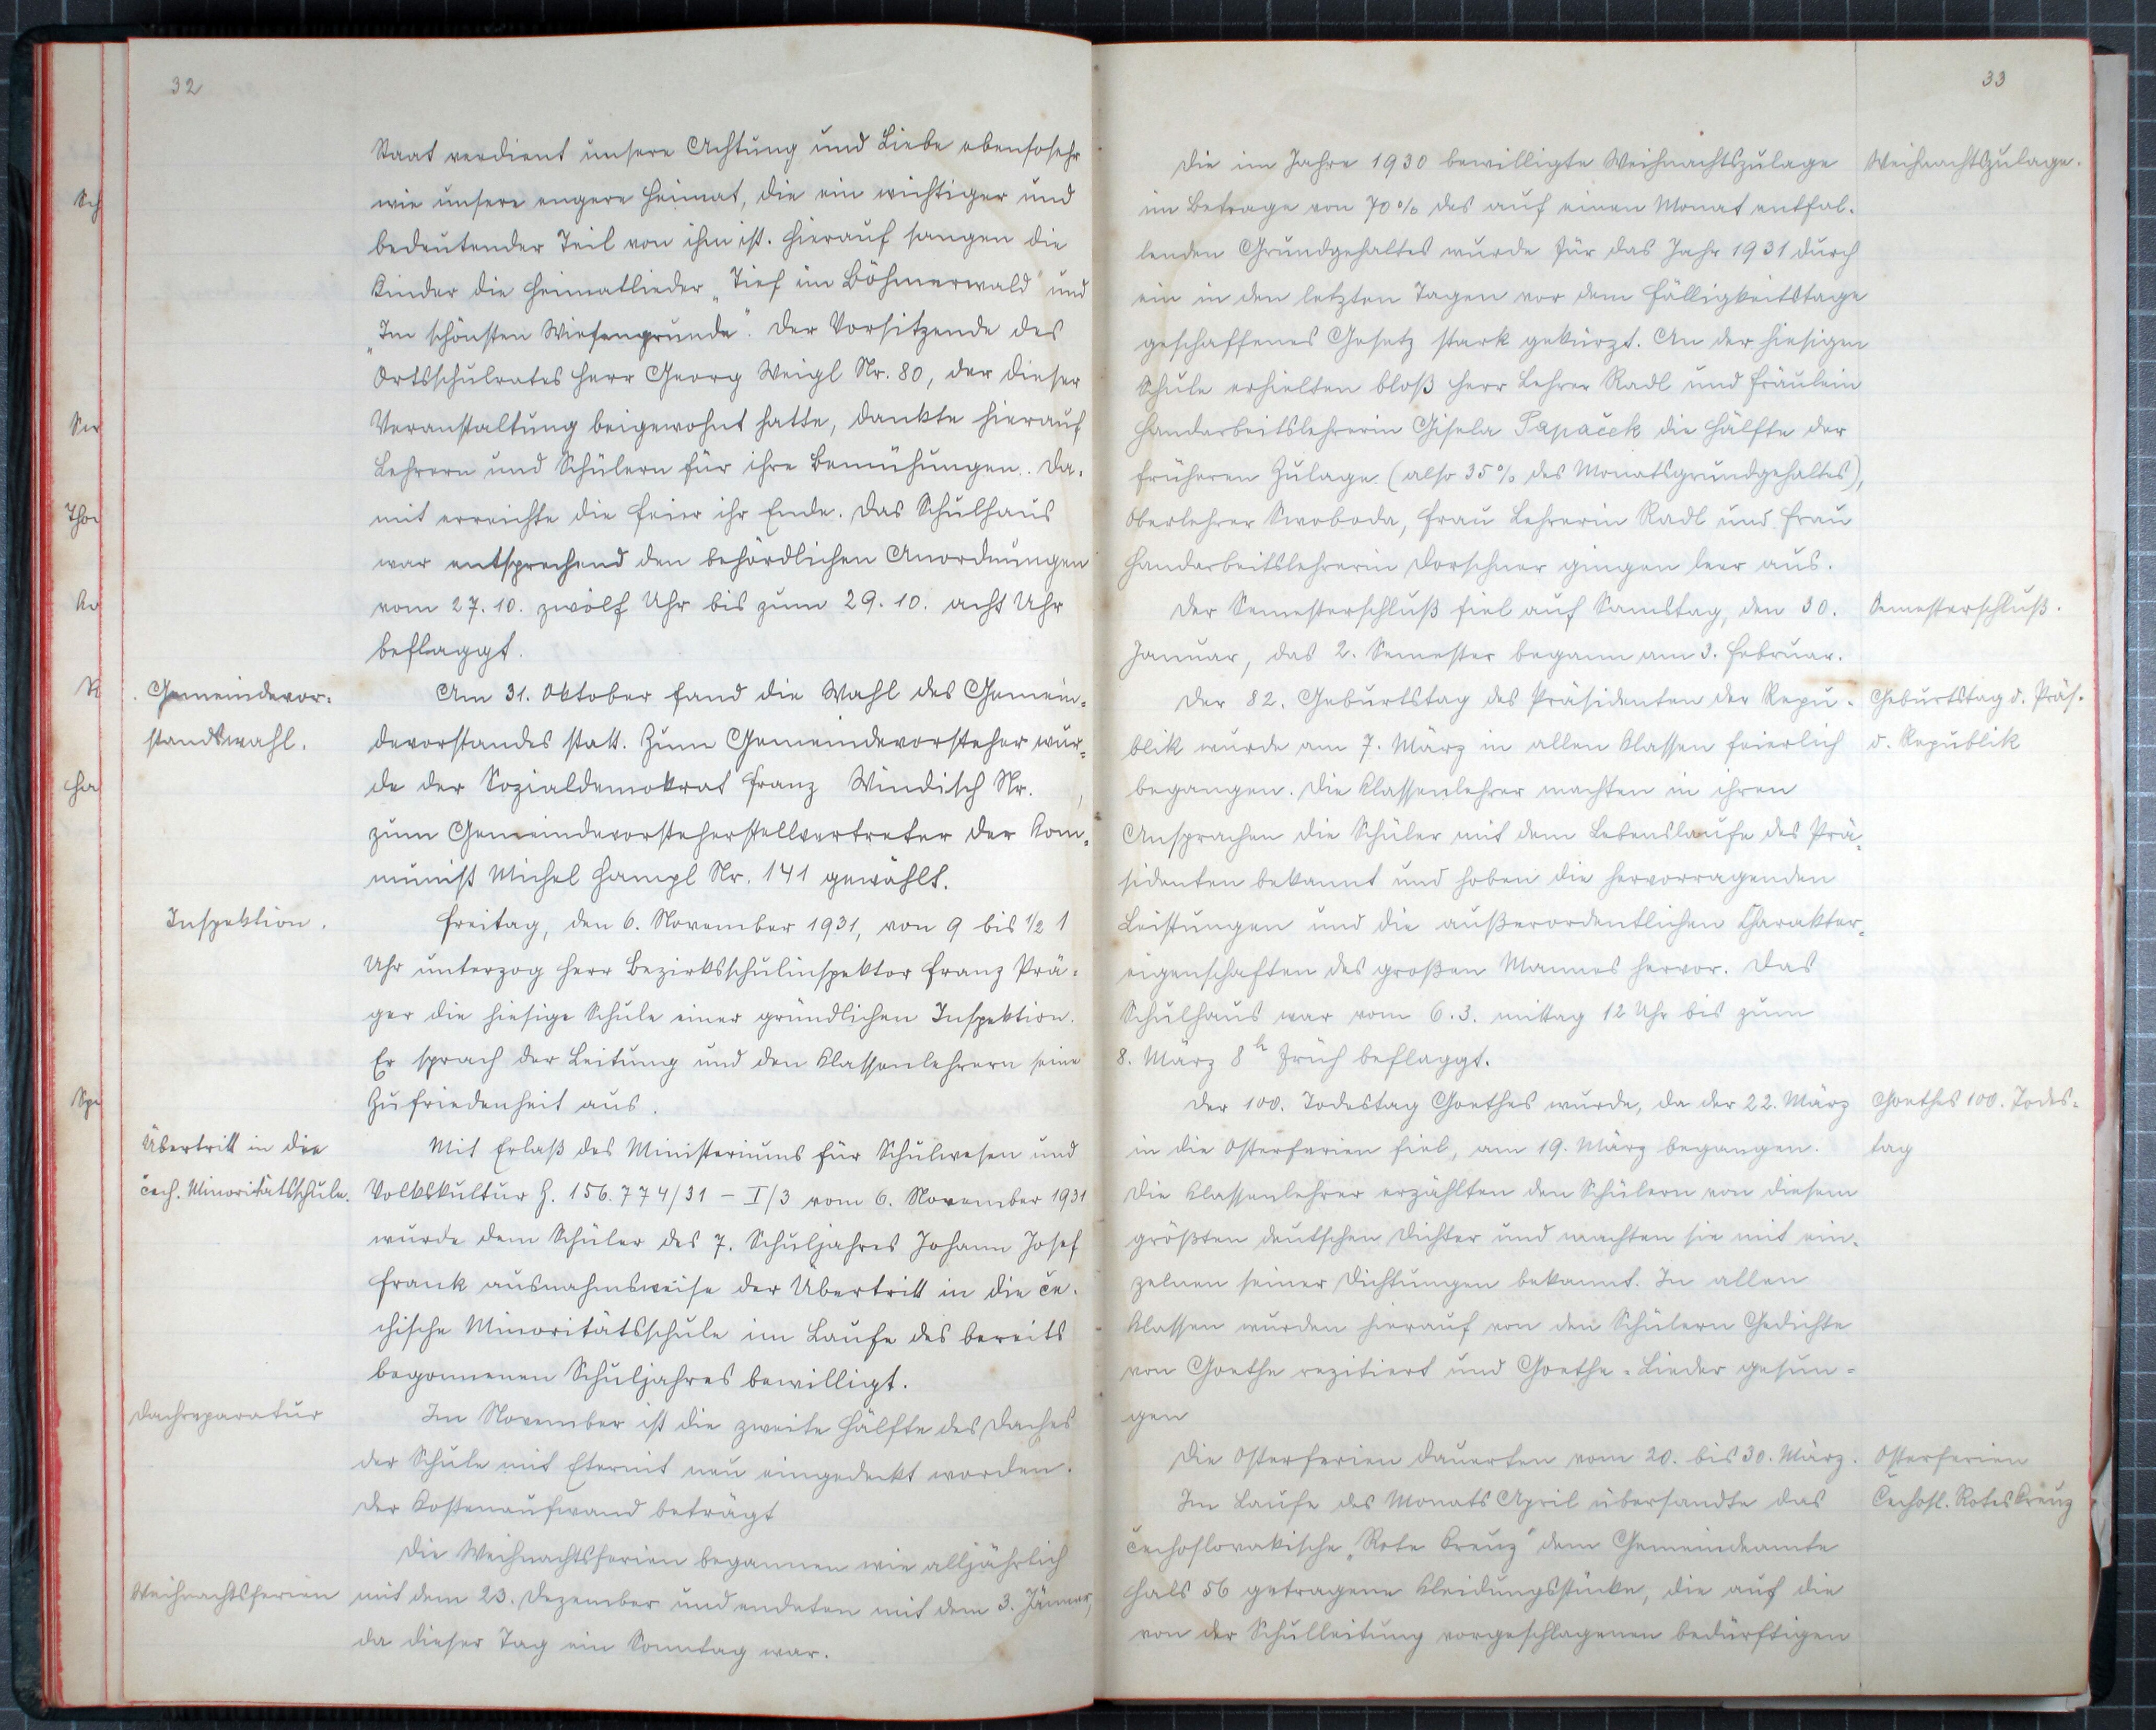 32
Staat verdient unsere Achtung und Liebe ebensosehr
wie unsere engere Heimat, die ein wichtiger und
bedeutender Teil von ihm ist. Hierauf sangen die
Kinder die Heimatlieder „Tief im Böhmerwald" und
„Im schönsten Wiesengrunde". Der Vorsitzende des
Ortsschulrates Herr Georg Weigl Nr. 80, der dieser
Veranstaltung beigewohnt hatte, dankte hierauf
Lehrern und Schülern für ihre Bemühungen. Da-
mit erreichte die Feier ihr Ende. Das Schulhaus
war entsprechend den behördlichen Anordnungen
vom 27.10. zwölf Uhr bis zum 29.10. acht Uhr
beflaggt.
Gemeindevor-
standswahl.
Am 31. Oktober fand die Wahl des Gemein-
devorstandes statt. Zum Gemeindevorsteher wur-
de der Sozialdemokrat Franz Windisch Nr. ,
zum Gemeindevorsteherstellvertreter der Kom-
munist Michel Hampl Nr. 141 gewählt.
Inspektion.
Freitag, den 6. November 1931, von 9 bis ½ 1
Uhr unterzog Herr Bezirksschulinspektor Franz Prä-
ger die hiesige Schule einer gründlichen Inspektion.
Er sprach der Leitung und den Klassenlehrern seine
Zufriedenheit aus.
Übertritt in die
čech. Minoritätsschule.
Mit Erlaß des Ministeriums für Schulwesen und
Volkskultur Z. 156.774/31 – I/3 vom 6. November 1931
wurde dem Schüler des 7. Schuljahres Johann Josef
Frank ausnahmsweise der Übertritt in die če-
chische Minoritätsschule im Laufe des bereits
begonnenen Schuljahres bewilligt.
Dachreparatur
Im November ist die zweite Hälfte des Daches
der Schule mit Eternit neu eingedeckt worden.
Der Kostenaufwand beträgt
Die Weihnachtsferien begannen wie alljährlich
Weihnachtsferien
mit dem 23. Dezember und endeten mit dem 3. Jänner,
da dieser Tag ein Sonntag war.
33
Die im Jahre 1930 bewilligte Weihnachtszulage
Weihnachtszulage.
im Betrage von 70% des auf einen Monat entfal-
lenden Grundgehaltes wurde für das Jahr 1931 durch
ein in den letzten Tagen vor dem Fälligkeitstage
geschaffenes Gesetz stark gekürzt. An der hiesigen
Schule erhielten bloß Herr Lehrer Radl und Fräulein
Handarbeitslehrerin Gisela Papaček die Hälfte der
früheren Zulage (also 35% des Monatsgrundgehaltes),
Oberlehrer Swoboda, Frau Lehrerin Radl und Frau
Handarbeitslehrerin Dorschner gingen leer aus.
Der Semesterschluß fiel auf Samstag, den 30.
Semesterschluß.
Januar, das 2. Semester begann am 3. Februar.
Der 82. Geburtstag des Präsidenten der Repu-
Geburtstag d. Präs.
blik wurde am 7. März in allen Klassen feierlich
d. Republik
begangen. Die Klassenlehrer machten in ihren
Ansprachen die Schüler mit dem Lebenslaufe des Prä-
sidenten bekannt und hoben die hervorragenden
Leistungen und die außerordentlichen Charakter-
eigenschaften des großen Mannes hervor. Das
Schulhaus war vom 6.3. mittag 12 Uhr bis zum
8. März 8 h früh beflaggt.
Der 100. Todestag Goethes wurde, da der 22. März
Goethes 100. Todes-
in die Osterferien fiel, am 19. März begangen.
tag
Die Klassenlehrer erzählten den Schülern von diesem
größten deutschen Dichter und machten sie mit ein-
zelnen seiner Dichtungen bekannt. In allen
Klassen wurden hierauf von den Schülern Gedichte
von Goethe rezitiert und Goethe-Lieder gesun-
gen
Die Osterferien dauerten vom 20. bis 30. März.
Osterferien
Im Laufe des Monats April übersandte das
Čechosl. Rotes Kreuz
čechoslovakische „Rote Kreuz" dem Gemeindeamte
Hals 56 getragene Kleidungsstücke, die auf die
von der Schulleitung vorgeschlagenen bedürftigen